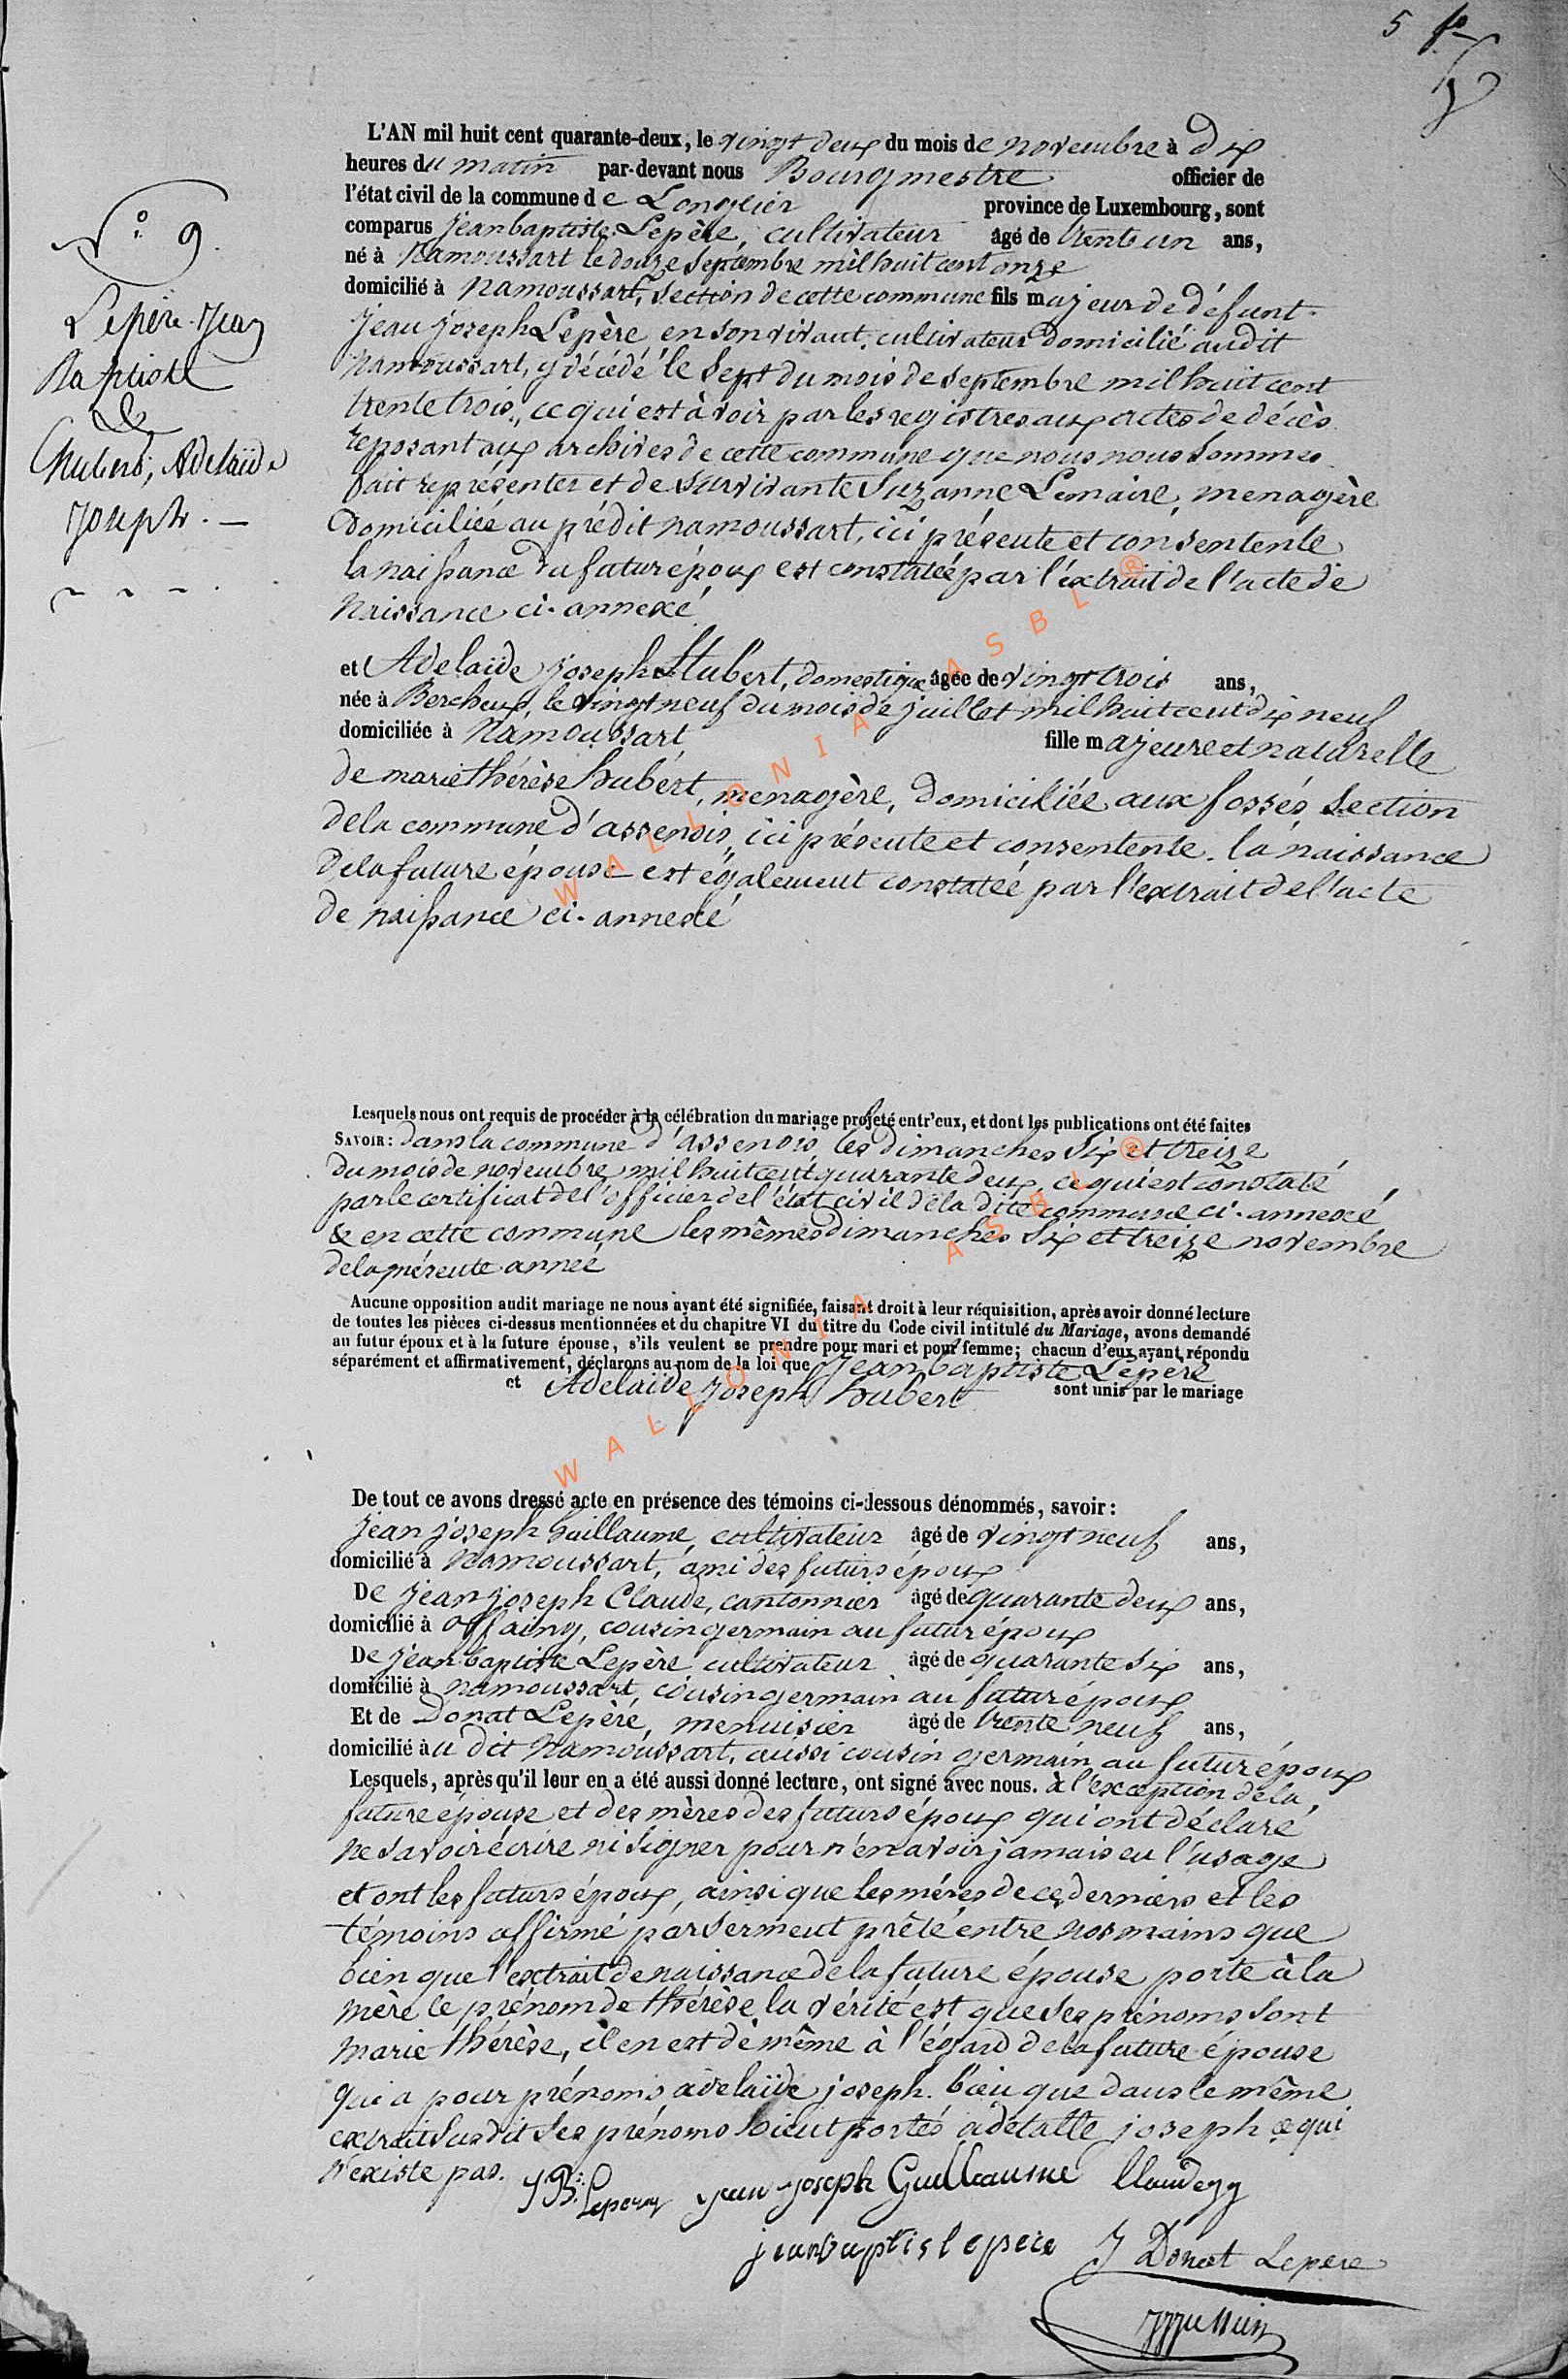 5 fo
N° 9.
Lepère Jean
Baptiste
&
Hubert, Adelaïde
Joseph. —
L'AN mil huit cent quarante-deux, le vingt deux du mois de novembre à dix
heures du matin par-devant nous Bourgmestre officier de
l'état civil de la commune de Longlier province de Luxembourg, sont
comparus Jean baptiste Lepère, cultivateur âgé de trente un ans,
né à Namoussart le douze septembre mil huit cent onze
domicilié à Namoussart, section de cette commune fils majeur de défunt
Jean joseph Lepère, en son vivant, cultivateur domicilié audit
Namoussart, y décédé le sept du mois de septembre mil huit cent
trente trois, ce qui est à voir par les registres aux actes de décès
reposant aux archives de cette commune que nous nous sommes
fait représenter et de survivante Suzanne Lemaire, menagère
domiciliée au prédit namoussart, ici présente et consentente
la naissance du futur époux est constatée par l'extrait de l'acte de
Naissance ci-annexé
et Adelaïde joseph Hubert, domestique âgée de vingt trois ans,
née à Bercheux, le vingt neuf du mois de juillet mil huit cent dix neuf
domiciliée à Namoussart fille majeure et naturelle
de marie thérèse hubert, menagère, domiciliée aux fossés, section
de la commune d'assenois, ici présente et consentente. la naissance
de la future épouse est également constatée par l'extrait de l'acte
de naissance ci-annexé
Lesquels nous ont requis de procéder à la célébration du mariage projeté entr'eux, et dont les publications ont été faites
SAVOIR: dans la commune d'assenois les dimanches six et treize
du mois de novembre mil huit cent quarante deux, ce qui est constaté
par le certificat de l'officier de l'état civil de la dite commune ci-annexé,
& en cette commune les mêmes dimanches six et treize novembre
de la présente année
Aucune opposition audit mariage ne nous ayant été signifiée, faisant droit à leur réquisition, après avoir donné lecture
de toutes les pièces ci-dessus mentionnées et du chapitre VI du titre du Code civil intitulé du Mariage, avons demandé
au futur époux et à la future épouse, s'ils veulent se prendre pour mari et pour femme; chacun d'eux ayant répondu
séparément et affirmativement, déclarons au nom de la loi que Jean baptiste Lepère
et Adelaïde joseph hubert sont unis par le mariage
De tout ce avons dressé acte en présence des témoins ci-dessous dénommés, savoir:
Jean joseph Guillaume, cultivateur âgé de vingt neuf ans,
domicilié à Namoussart, ami des futurs époux
De Jean joseph Claude, cantonnier âgé de quarante deux ans,
domicilié à offaing, cousin germain au futur époux
De Jean baptiste Lepère cultivateur âgé de quarante six ans,
domicilié à namoussart, cousin germain au futur époux
Et de Donat Lepère, menuisier âgé de trente neuf ans,
domicilié à u dit Namoussart, aussi cousin germain au futur époux
Lesquels, après qu'il leur en a été aussi donné lecture, ont signé avec nous. à l'exception de la
future épouse et des mères des futurs époux qui ont déclaré
ne savoir écrire ni signer pour n'en avoir jamais eu l'usage
et ont les futurs époux, ainsi que les mères de ces derniers et les
témoins affirmé par serment prêté entre nos mains que
bien que l'extrait de naissance de la future épouse porte à la
mère le prénom de thérèse la vérité est que ses prénoms sont
Marie thérèse, il en est de même à l'égard de la future épouse
qui a pour prénoms adelaïde joseph. bien que dans le même
extrait susdit ses prénoms soient portés adetalle joseph ce qui
n'existe pas.
JB: Leperre jean-joseph Guillaume
jeanbaptis lepere J Donat Lepere
WALLONIA ASBL ®
WALLONIA ASBL ®